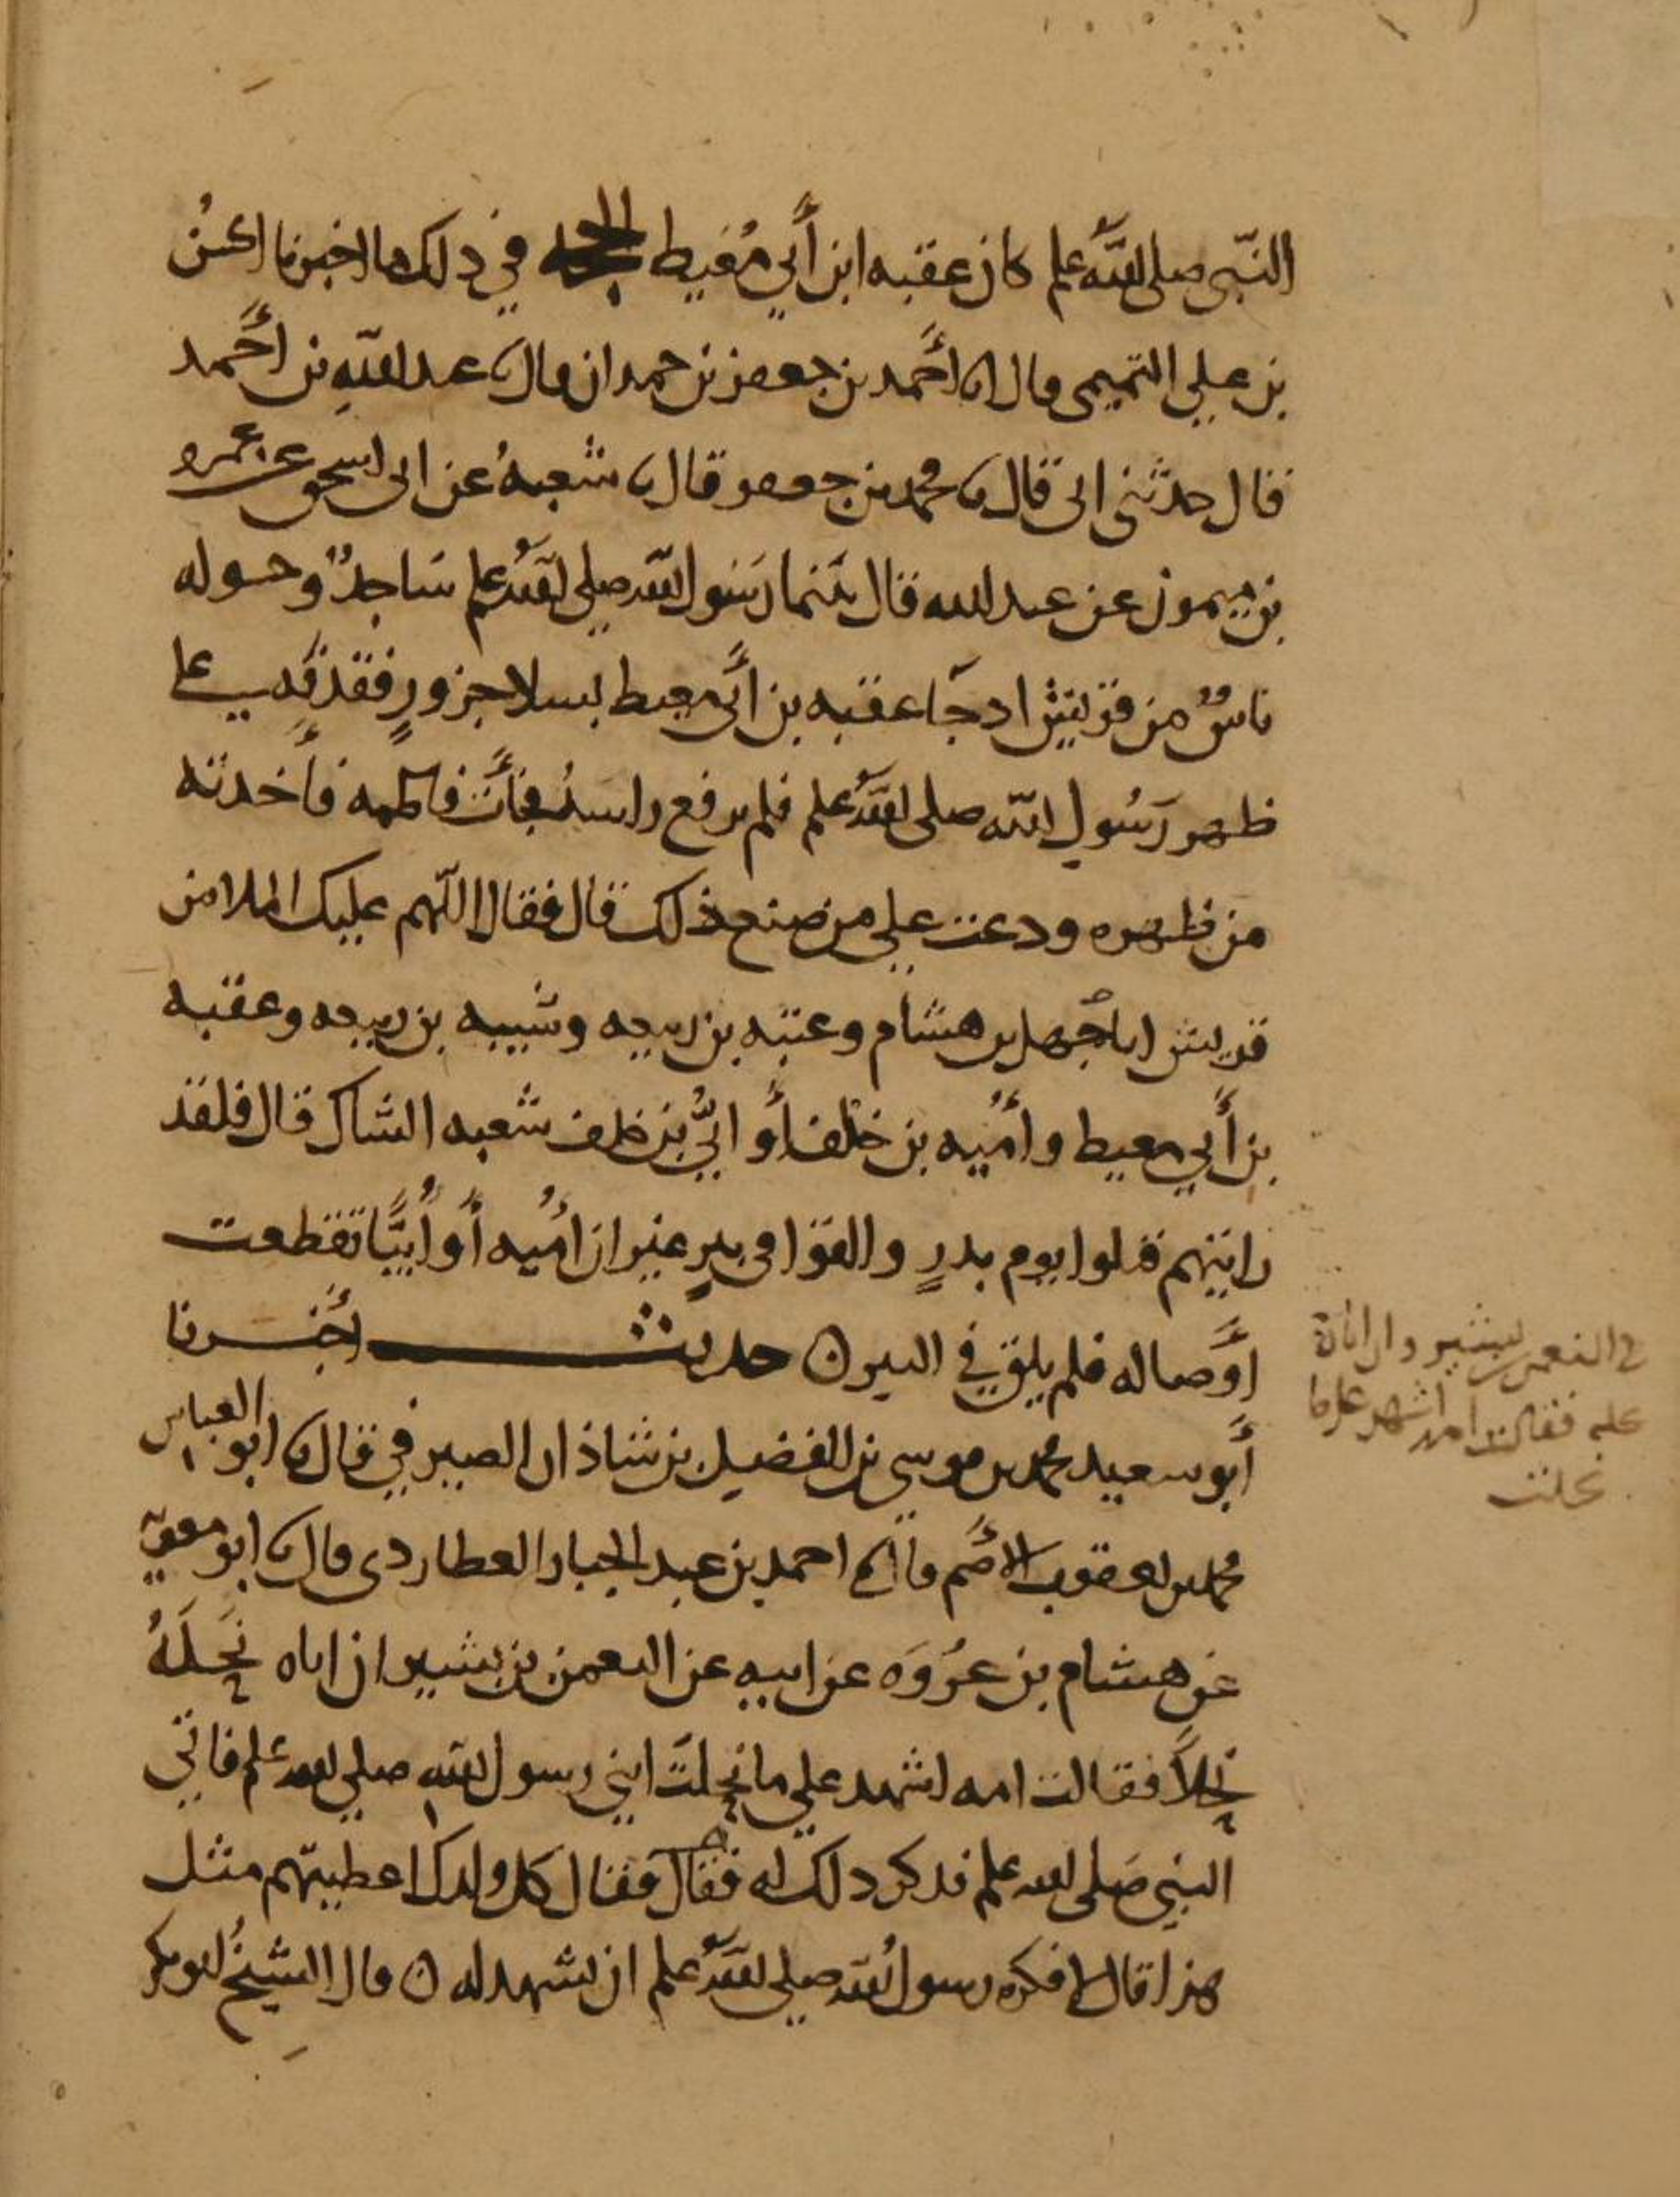 النبي صلى الله علم كان عقبه ابن أبي مُعَيط الحجه في ذلك ما اخبرنا الحسنُ
بن علي التميمي قال انا أحَمد بن جعفر بن حمدان قال نا عبد اللهِ بن أحَمد
قال حدثني ابي قال نا محمد بن جعفر قال نا شعبهُ عن ابي اسحق عن عمرو
بن ميمون عن عبد الله قال بَينما رَسُول الله صلى اللهُ علم سَاجدٌ وحوله
ناسٌ من قريش اذ جَا عقبه بن أبي معيط بسلا جزورٍ فقذفه على
ظهر رَسُولِ الله صلى اللهُ علم فلم يرفع راسهُ فجأت فاطمه فأخذته
من ظهره ودعت علي من صنع ذلك قال فقال اللهم عليك الملا من
قريش ابا جهل بن هشام وعتبه بن ربيعه وشيبه بن ربيعه وعقبه
بن أبي معيط وأميه بن خلف أو ابيُّ بن خلف شعبه الشاك قال فلقد
رايتهم قتلوا يوم بدرٍ والقوا في بيرٍ غير ان أميه أو أُبيَّا تقطعت
أوَصاله فلم يلق في البير ن حديث أخبرنا
أبو سعيد محمد بن موسى بن الفضيل بن شاذان الصيرفي قال نا ابو العباس
محمد بن يعقوب الأصَم قال نا احمد بن عبد الجبار العطاردي قال نا ابو معوية
عن هشام بن عُروَه عن ابيه عن النعمن بن بشير ان اباه نَحَلَهُ
نحلاً فقالت امه اشهد علي ما نحلتَ ابني رسول اللهِ صلى الله علم فاتى
النبي صَلى الله علم فذكر ذلك له فقال فقال كل ولدك اعطيتهم مثل
هذا قال لا فكره رسولُ الله صلى اللهُ علم ان يشهد له ن قال الشيخُ ابو بكر
النعمن بن بشير وان اباه
علم فقالت امه اشهد على ما
نحلت